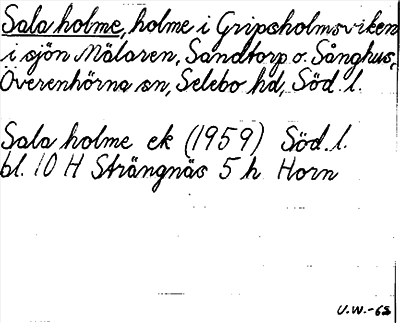 Sala holme, holme i Gripsholmsviken
i sjön Mälaren, Sandtorp o. Sånghus,
Överenhörna sn, Selebo hd, Söd. l.
Sala holme ek (1959) Söd. l.
bl. 10 H Strängnäs 5 h Horn
U.W.-65